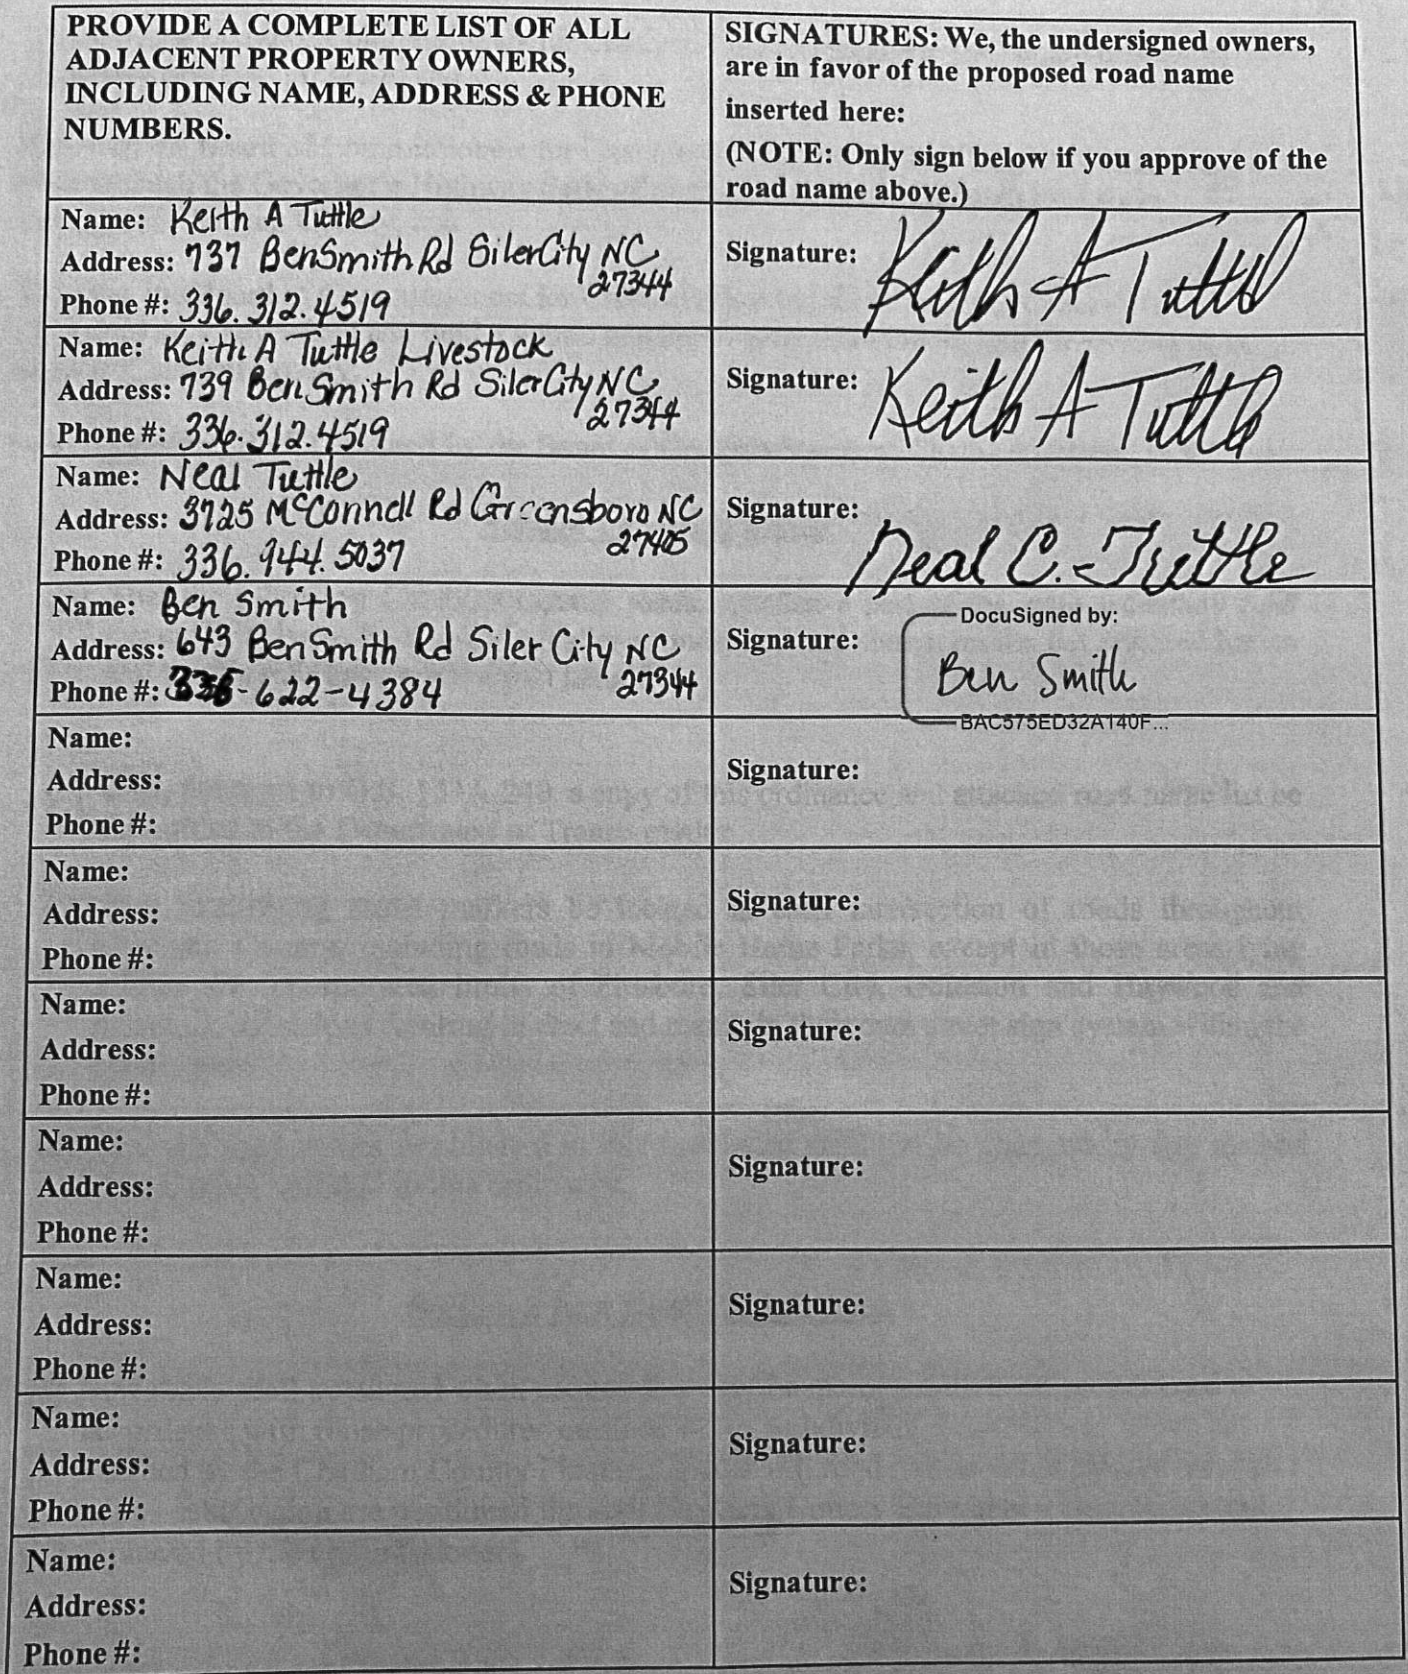 PROVIDE A COMPLETE LIST OF ALL
ADJACENT PROPERTY OWNERS,
INCLUDING NAME, ADDRESS & PHONE
NUMBERS.
SIGNATURES: We, the undersigned owners,
are in favor of the proposed road name
inserted here:
(NOTE: Only sign below if you approve of the
road name above.)
Name: Keith A Tuttle
Address: 737 Ben Smith Rd Siler City NC
27344
Phone #: 336.312.4519
Signature: Keith A Tuttle
Name: Keith A Tuttle Livestock
Address: 739 Ben Smith Rd Siler City NC
27344
Phone #: 336.312.4519
Signature: Keith A Tuttle
Name: Neal Tuttle
Address: 3725 McConnell Rd Greensboro NC
27405
Phone #: 336.944.5037
Signature: Neal C. Tuttle
Name: Ben Smith
Address: 643 Ben Smith Rd Siler City NC
27344
Phone #: 336-622-4384
Signature:
DocuSigned by:
Ben Smith
BAC575ED32A140F...
Name:
Address:
Phone #:
Signature:
Name:
Address:
Phone #:
Signature:
Name:
Address:
Phone #:
Signature:
Name:
Address:
Phone #:
Signature:
Name:
Address:
Phone #:
Signature:
Name:
Address:
Phone #:
Signature:
Name:
Address:
Phone #:
Signature: